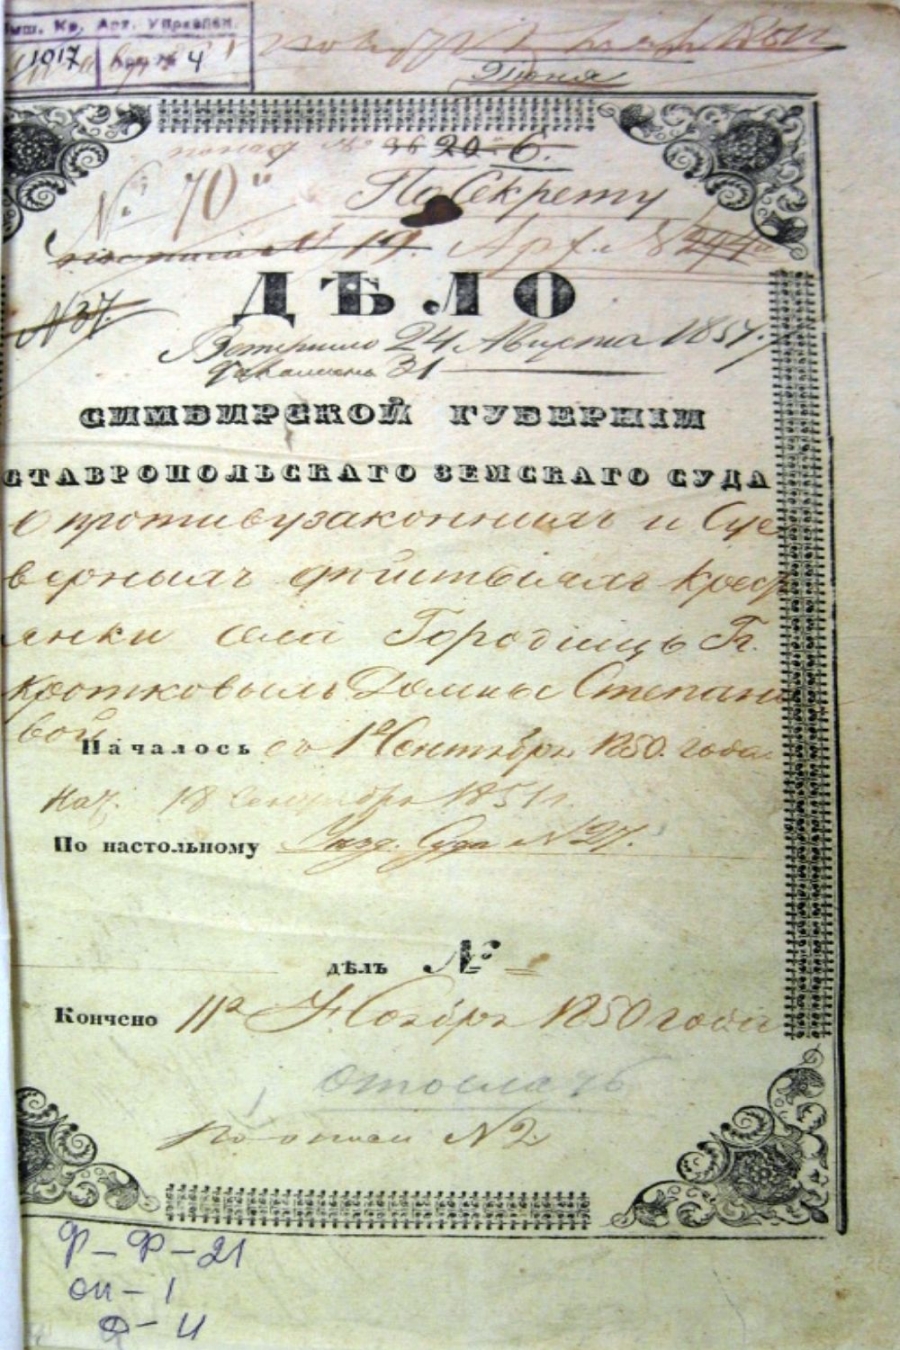 Кр. Арх. Управлен.
1917 № 4
Июня
20 6.
№ 70
По Секрету
№ 19. Арх. №
№ 37.
ДѢЛО
24 Августа 1851
31
СИМБИРСКОЙ ГУБЕРНІИ
СТАВРОПОЛЬСКАГО ЗЕМСКАГО СУДА
О противузаконныхъ и Суе
верныхъ дѣйствіяхъ крест
янки села Городищъ Гг.
Кротковыхъ Домны Степано
вой
Началось съ 1го Сентября 1850. года
Нач. 18 Сентября 1851 г.
По настольному Уезд. Суда № 27.
дѣлъ №
Кончено 11го Ноября 1850 года
Отослать
По описи № 2
Р-Ф-21
оп-1
Д-4